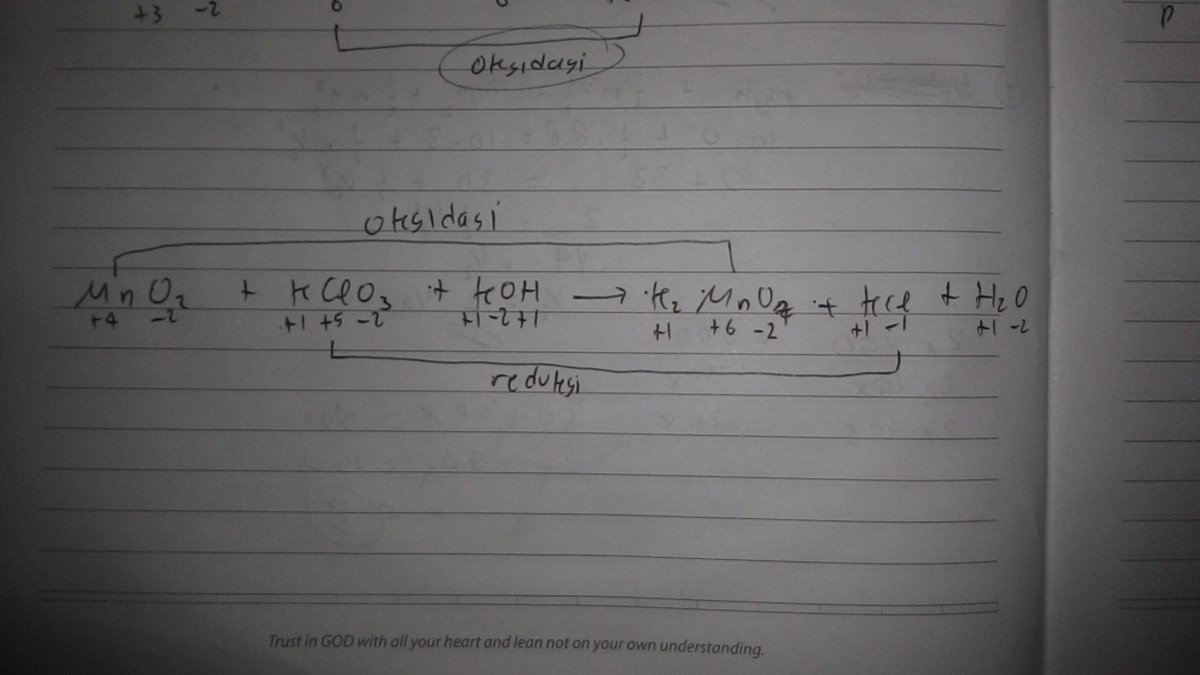 +3 -2
oksidasi
P
oksidasi
MnO₂ + KClO₃ + KOH → K₂MnO₄ + KCl + H₂O
+4 -2 +1 +5 -2 +1 -2 +1 +1 +6 -2 +1 -1 +1 -2
reduksi
Trust in GOD with all your heart and lean not on your own understanding.